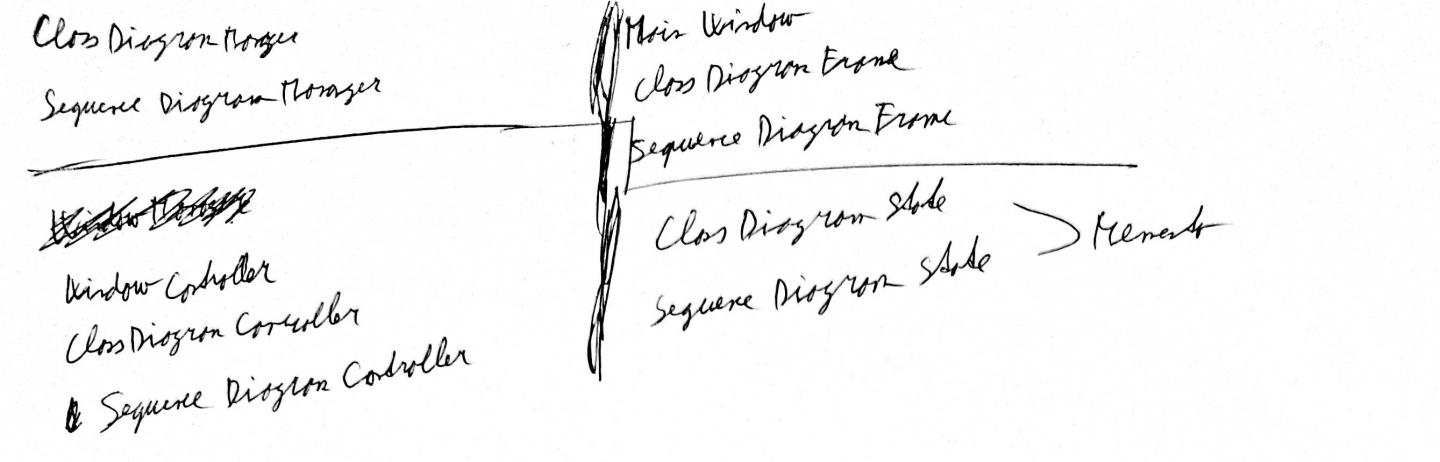 Class Diagram Manager
Sequence Diagram Manager
Window Controller
Class Diagram Controller
Sequence Diagram Controller
Main Window
Class Diagram Frame
Sequence Diagram Frame
Class Diagram State
Sequence Diagram State
Memento